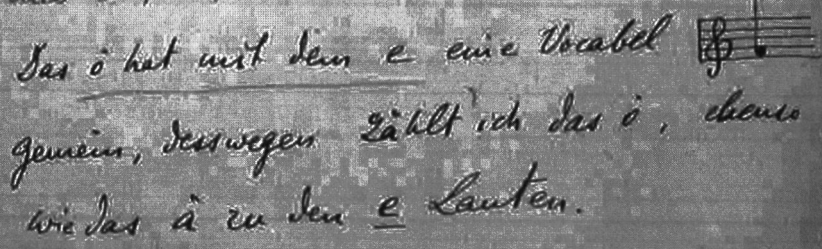 Das ö hat mit dem e eine Vocabel
gemein, desswegen zählt ich das ö, ebenso
wie das ä zu den e Lauten.